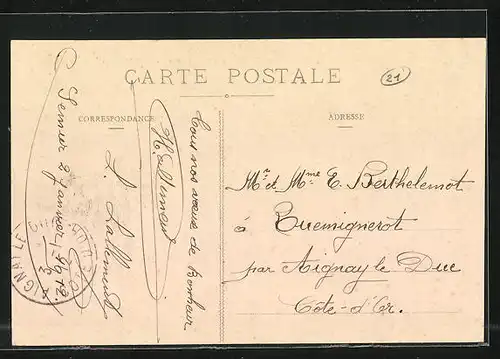 CARTE POSTALE
21
CORRESPONDANCE
ADRESSE
Semur 2 Janvier 1912.
L. Lallemand
H. Lallemand
Tous nos vœux de Bonheur
Mr et Mme E. Berthelemot
à Quemignerot
par Aignay le Duc
Côte-d'Or.